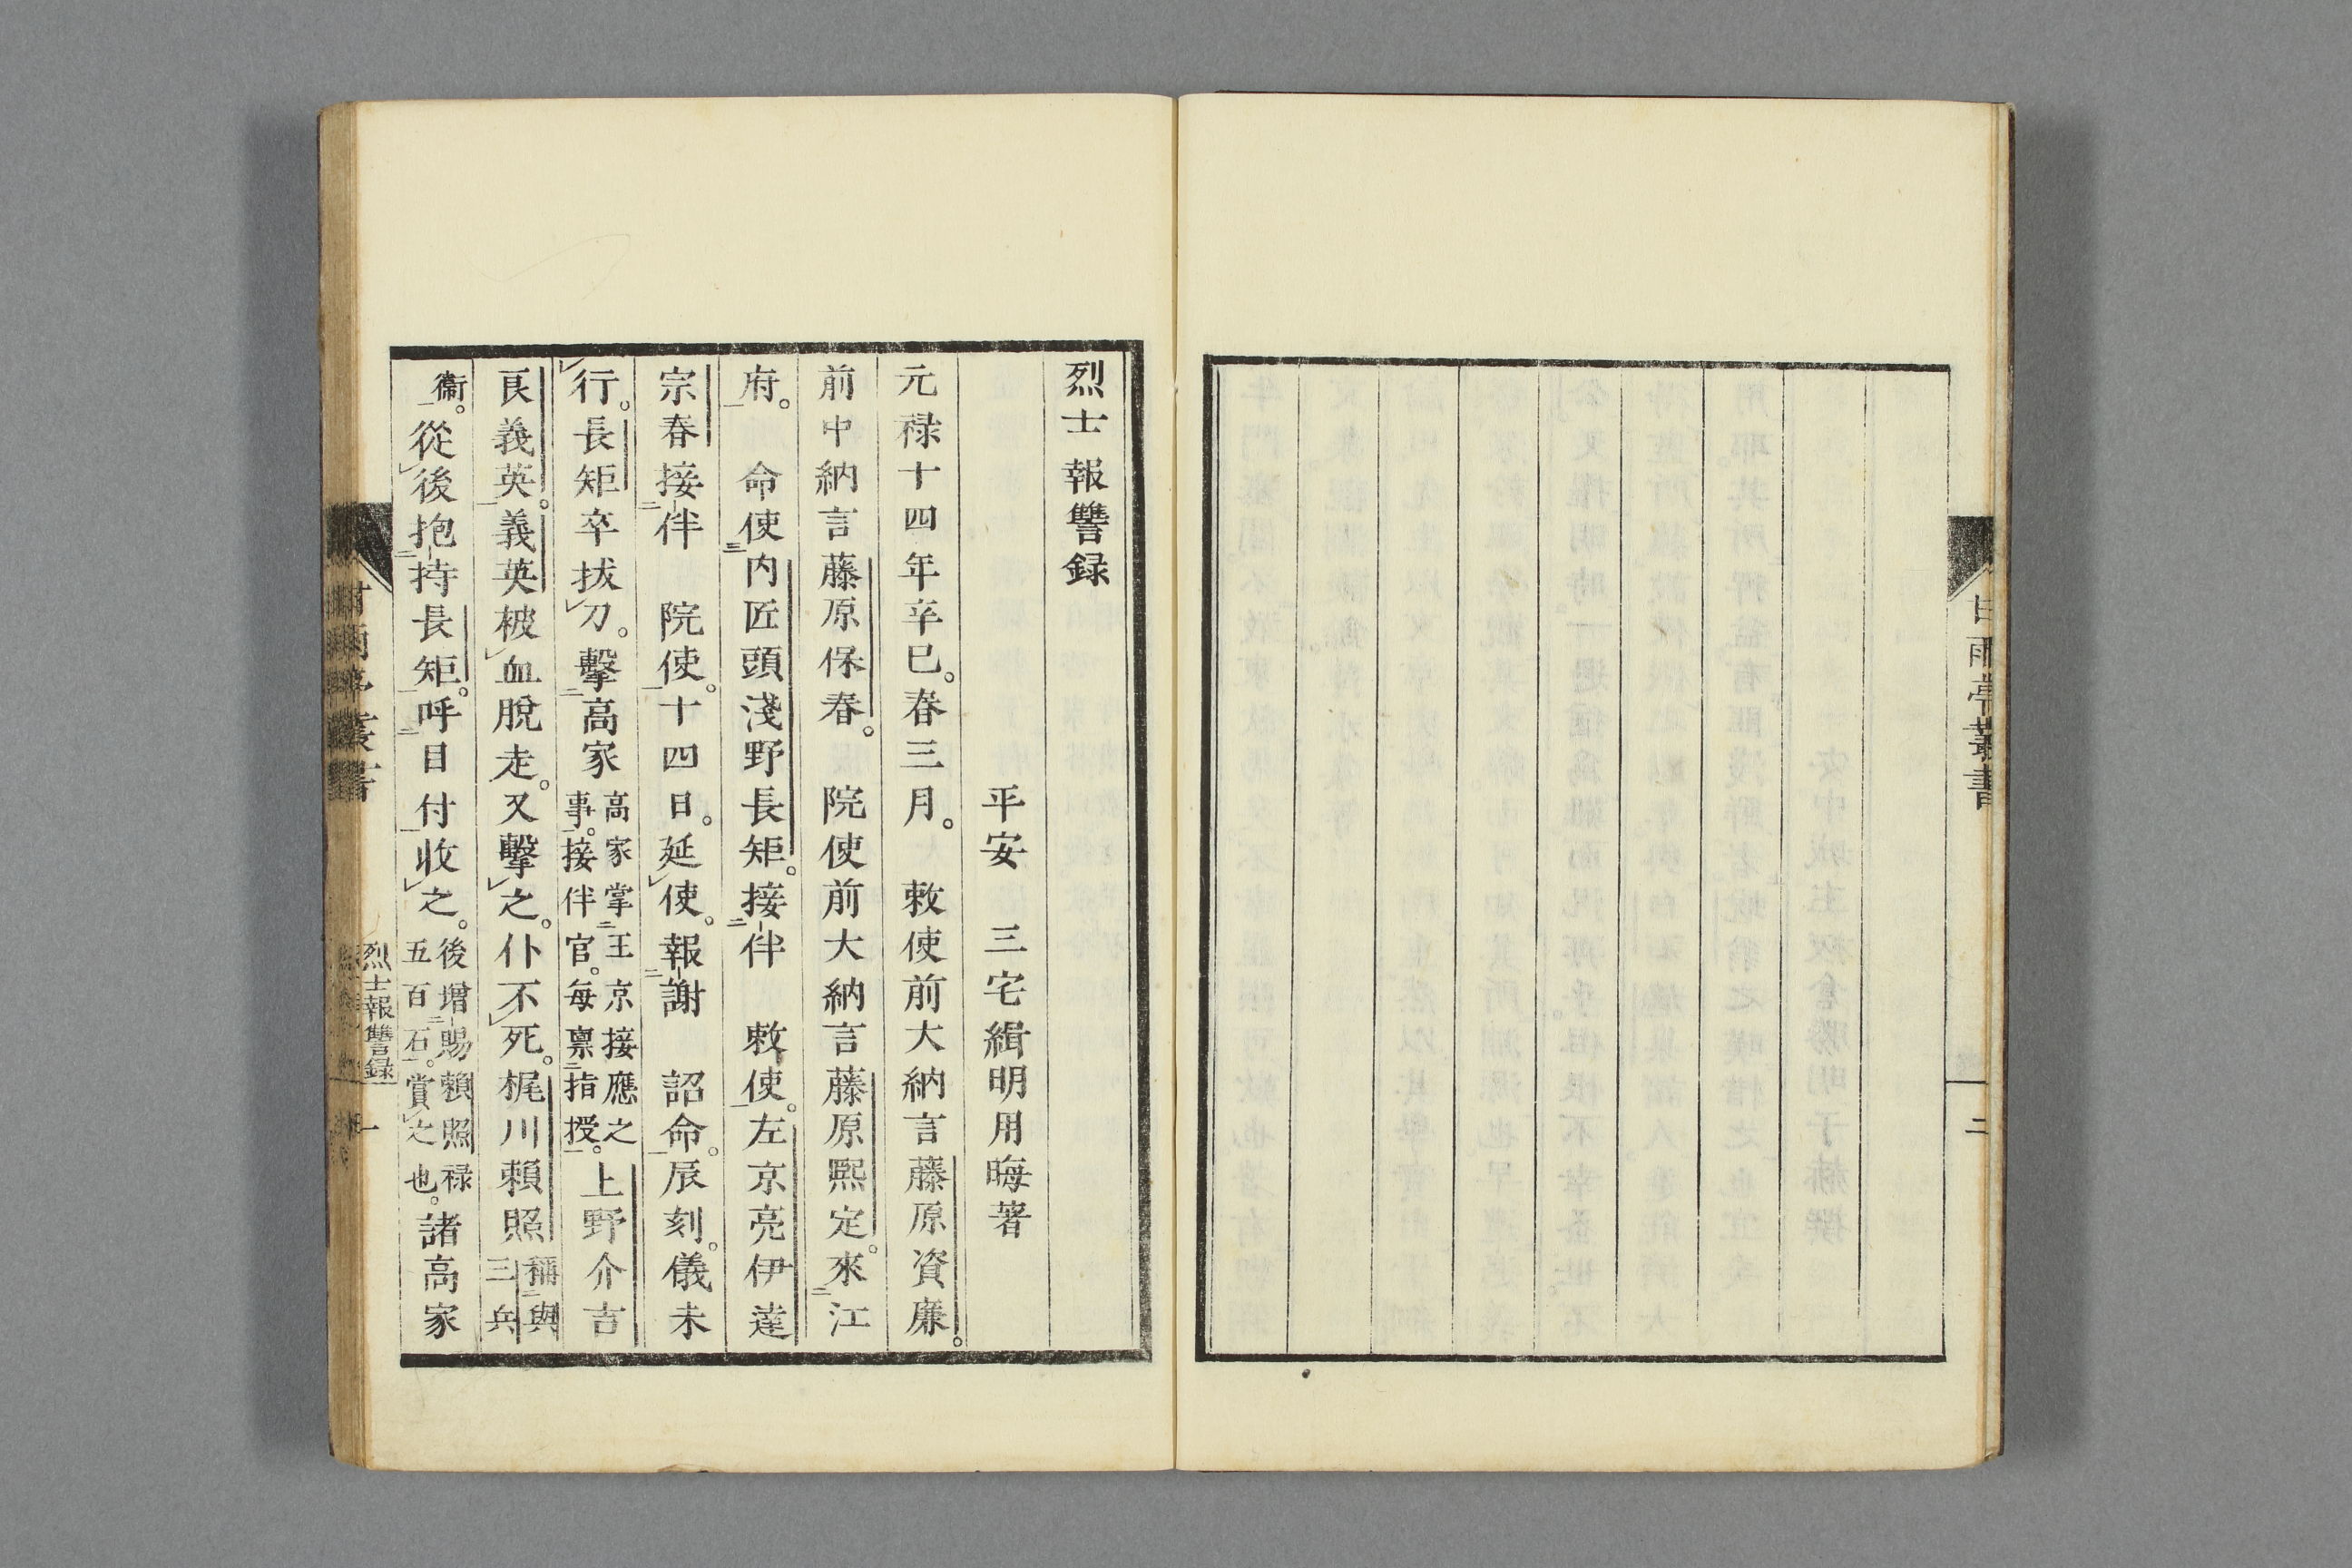 甘雨亭叢書
二
烈士報讐録
平安　三宅緝明用晦著
元禄十四年辛巳。春三月。　敕使前大納言藤原資廉。
前中納言藤原保春。　院使前大納言藤原熈定。來二江
府一。　命使三内匠頭淺野長矩。接二伴　敕使一。左京亮伊達
宗春接二伴　院使一。十四日。延レ使。報二謝　詔命一。辰刻。儀未
レ行。長矩卒拔レ刀。擊二高家高家掌二王京接應之事一。接伴官。每禀二指授一。上野介吉
良義英一。義英被レ血脫走。又擊レ之。仆不レ死。梶川賴照稱二與三兵
衞一。從レ後抱二持長矩一。呼二目付一收レ之。後增二賜賴照禄五百石一。賞レ之也。諸高家
烈士報讐録
一